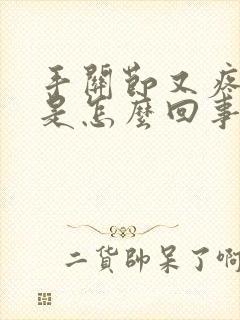 手關節又疼
是怎麼回事
二貨帥呆了啊